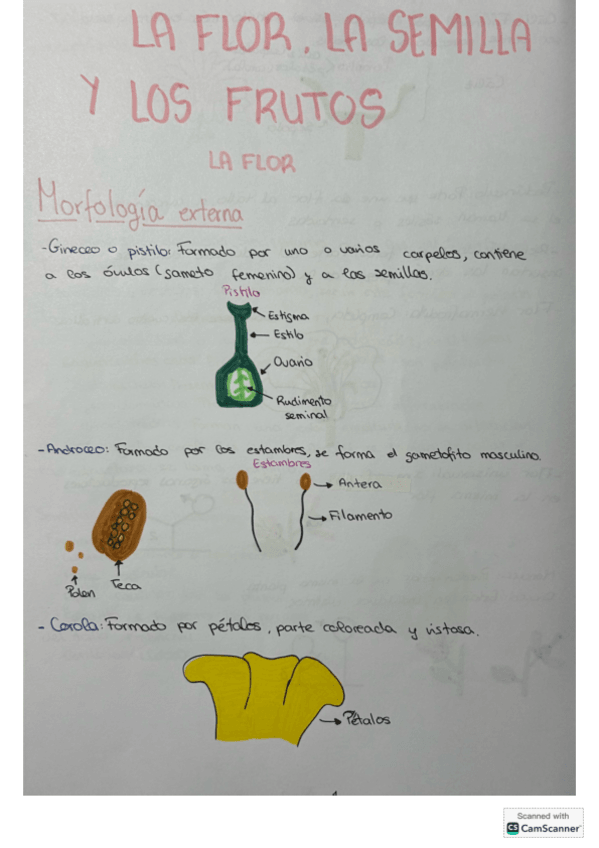 LA FLOR, LA SEMILLA
Y LOS FRUTOS
LA FLOR
Morfología externa
-Gineceo o pistilo: Formado por uno o varios carpelos, contiene
a los óvulos (gameto femenino) y a las semillas.
Pistilo
Estigma
Estilo
Ovario
Rudimento
seminal
-Androceo: Formado por los estambres, se forma el gametofito masculino.
Estambres
Antera
Filamento
Polen
Teca
- Corola: Formado por pétalos, parte coloreada y vistosa.
Pétalos
Scanned with
CS CamScanner